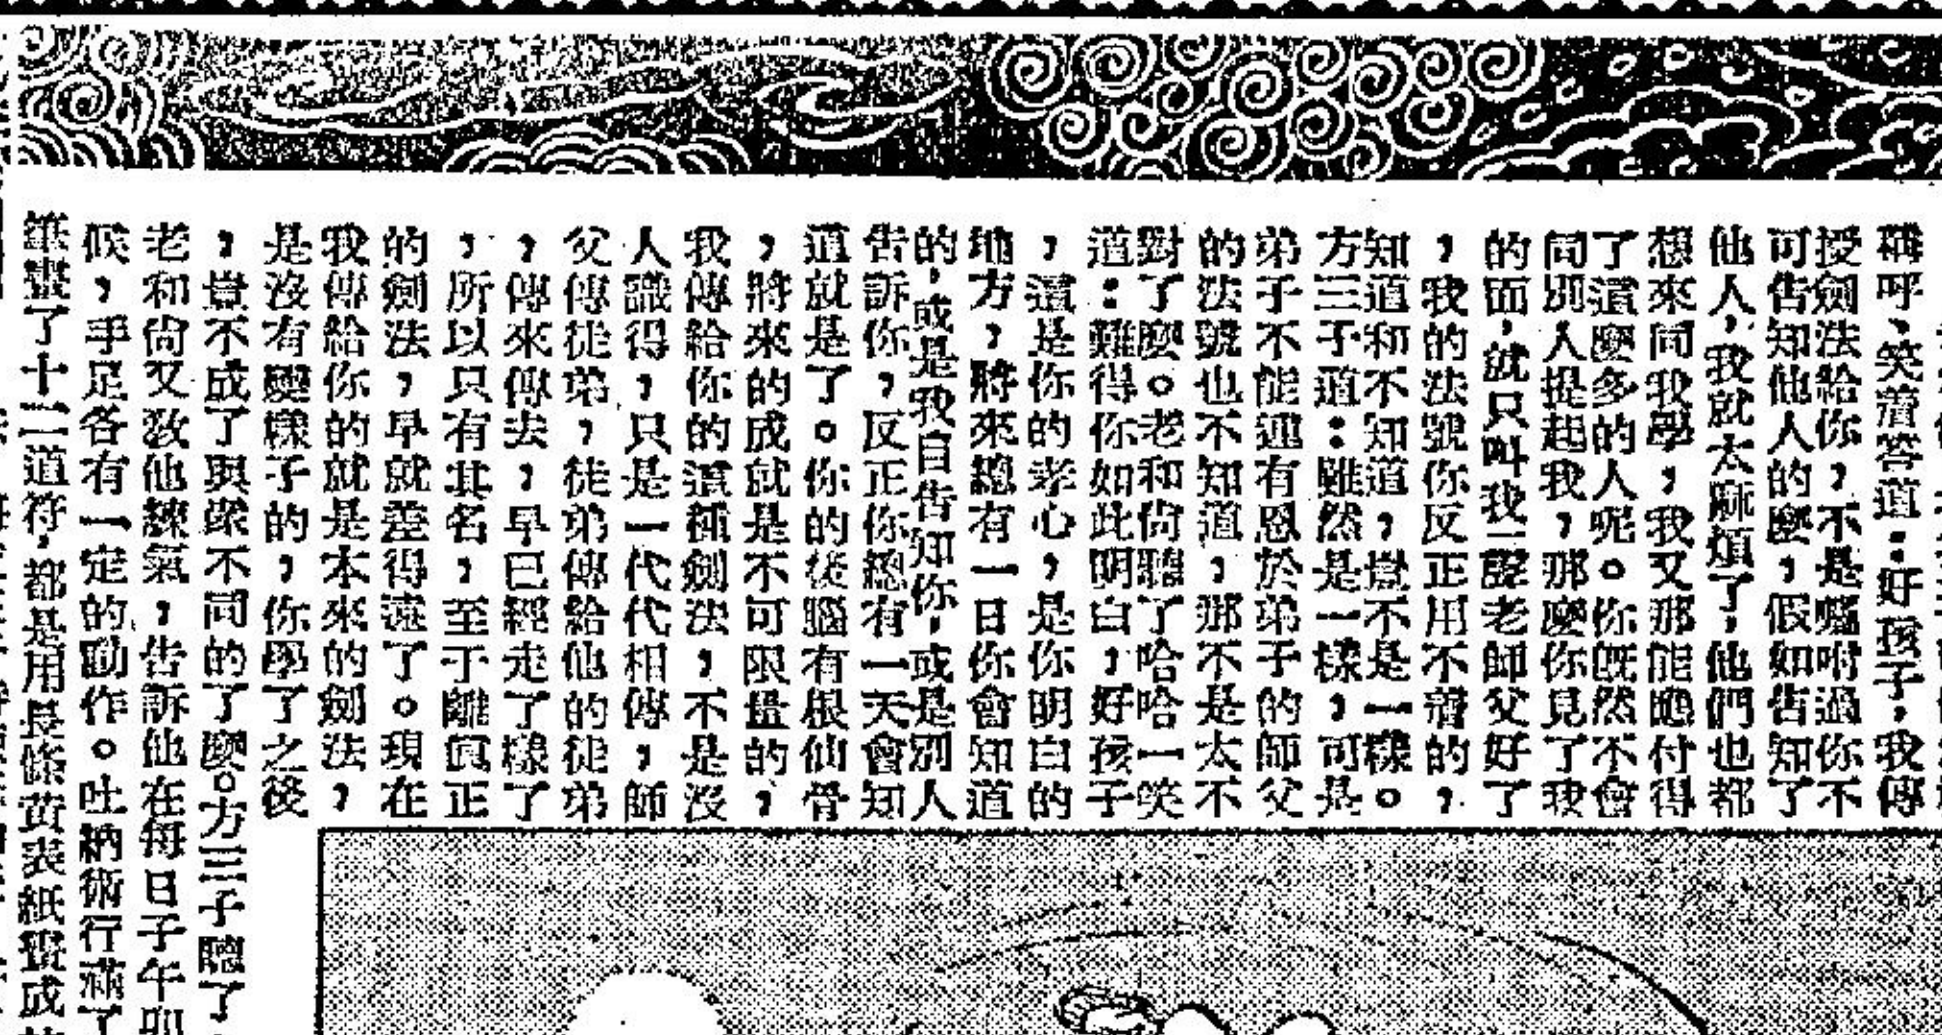 稱呼、笑着答道：好孩子，我傳
授劍法給你，不是囑咐過你不
可告知他人的麼，假如告知了
他人，我就太麻煩了，他們也都
想來同我學，我又那能應付得
了這麼多的人呢。你既然不會
同別人提起我，那麼你見了我
的面，就只叫我一聲老師父好了
，我的法號你反正用不着的，
知道和不知道，豈不是一樣。
方三子道：雖然是一樣，可是
弟子不能連有恩於弟子的師父
的法號也不知道，那不是太不
對了麼。老和尙聽了哈哈一笑
道：難得你如此明白，好孩子
，這是你的孝心，是你明白的
地方，將來總有一日你會知道
的，或是我自告知你，或是別人
告訴你，反正你總有一天會知
道就是了。你的後腦有根仙骨
，將來的成就是不可限量的，
我傳給你的這種劍法，不是沒
人識得，只是一代代相傳，師
父傳徒弟，徒弟傳給他的徒弟
，傳來傳去，早已經走了樣了
，所以只有其名，至于離眞正
的劍法，早就差得遠了。現在
我傳給你的就是本來的劍法，
是沒有變樣子的，你學了之後
，豈不成了與衆不同的了麼。方三子聽了
老和尙又敎他練氣，告訴他在每日子午卯
候，手足各有一定的動作。吐納術行滿了
筆畫了十二道符，都是用長條黃裱紙畫成